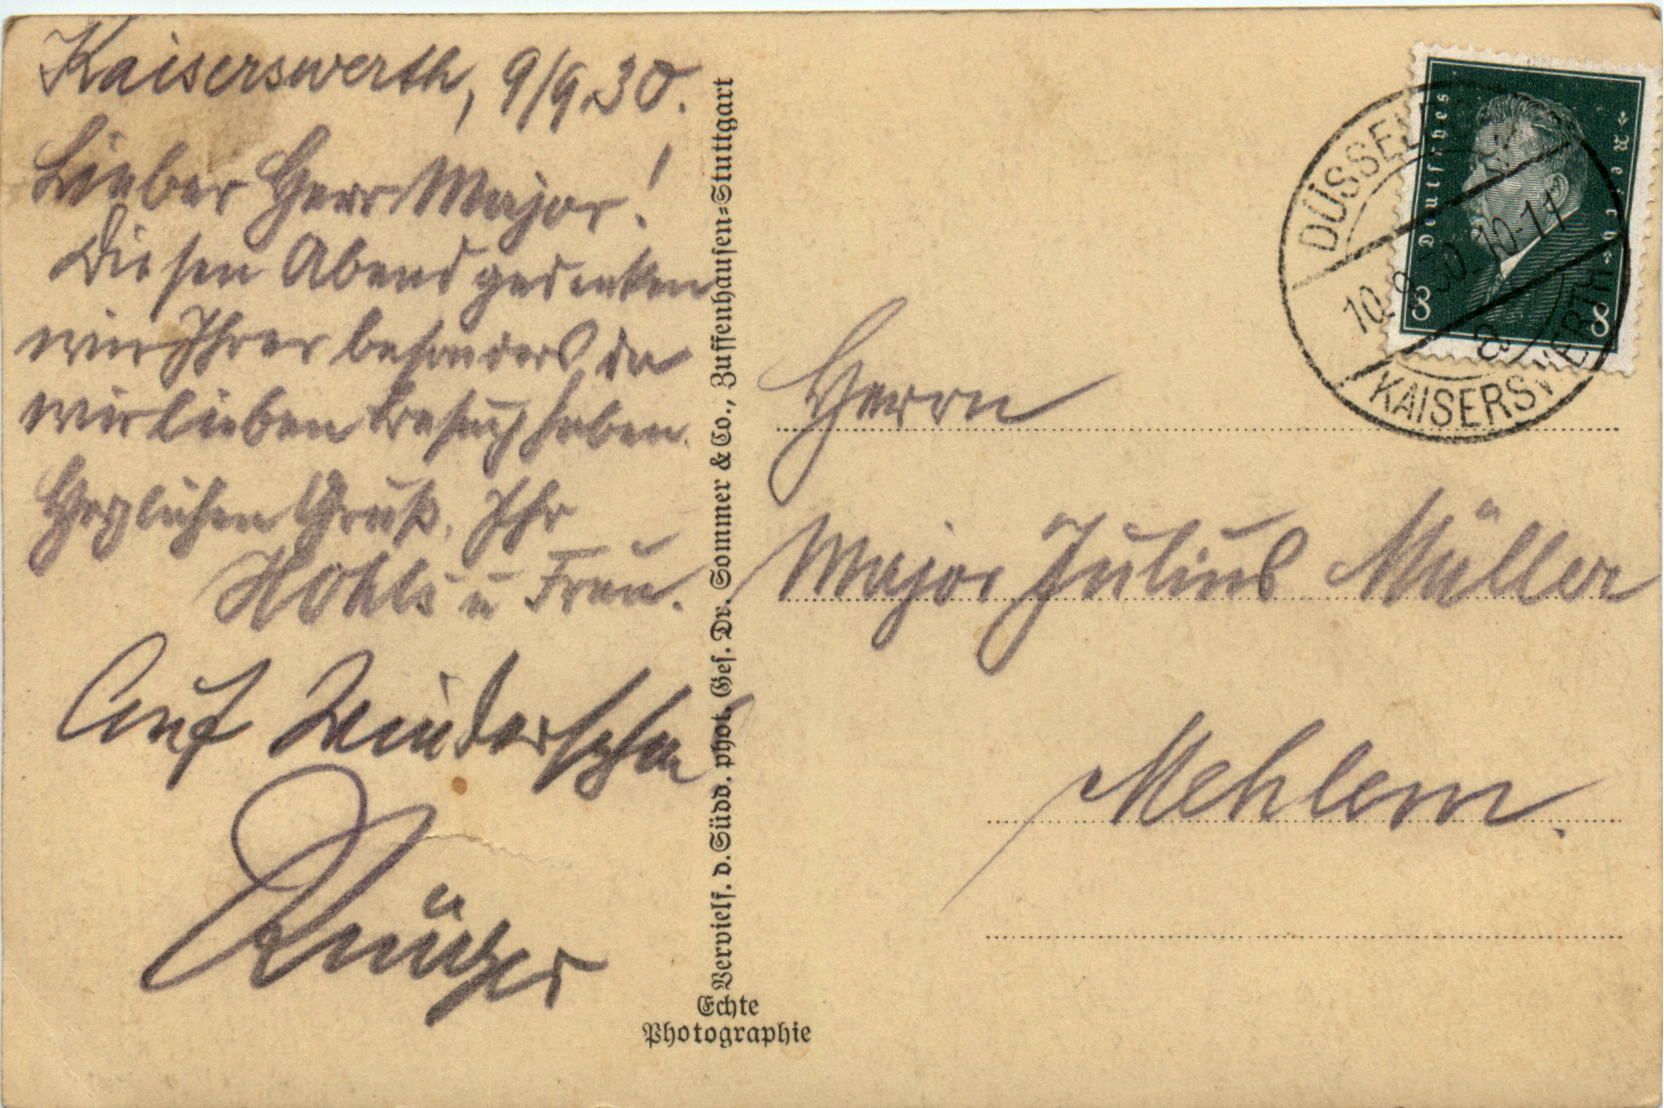 Kaiserswerth, 9/9.30.
Lieber Herr Major!
Diesen Abend gedenken
wir Ihrer besonders, da
wir lieben Besuch haben.
Herzlichen Gruß, Ihr
u Frau.
Auf Wiedersehn
Vervielf. d. Südd. phot. Ges. Dr. Sommer & Co., Zuffenhausen-Stuttgart
Echte
Photographie
Deutsches Reich
8 8
DÜSSEL
10.9.30.10-11
a
KAISERSWERTH
Herrn
Major Julius Müller
Mehlem.